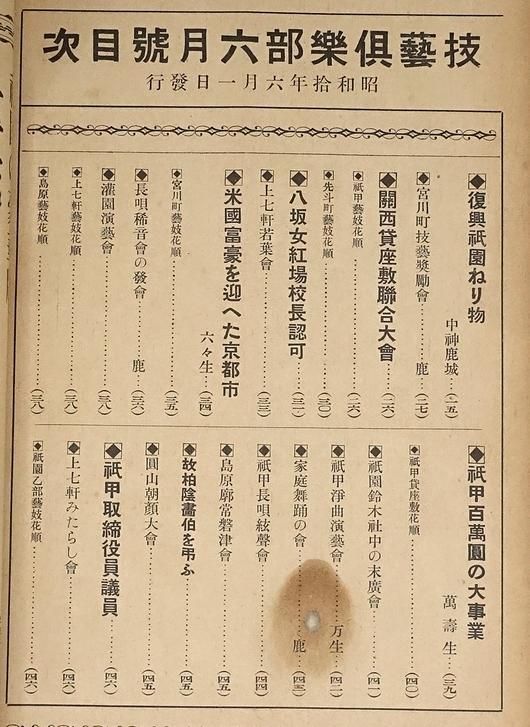 技藝俱樂部六月號目次
昭和拾年六月一日發行
復興祇園ねり物 中神鹿城…(一五)
宮川町技藝奬勵會…鹿…(二七)
關西貸座敷聯合大會…(二六)
祇甲藝妓花順…(二六)
先斗町藝妓花順…(三〇)
八坂女紅場校長認可…(三一)
上七軒若葉會…(三三)
米國富豪を迎へた京都市 六々生…(三四)
宮川町藝妓花順…(三五)
長唄稀音會の發會…鹿…(三六)
灌園演藝會…(三八)
上七軒藝妓花順…(三八)
島原藝妓花順…(三八)
祇甲百萬圓の大事業 萬壽生…(三九)
祇甲貸座敷花順…(四〇)
祇園鈴木社中の末廣會…(四一)
祇甲淨曲演藝會…万生…(四二)
家庭舞踊の會…鹿…(四三)
祇甲長唄絃聲會…(四四)
島原廓常磐津會…(四五)
故柏陰畵伯を弔ふ…(四五)
圓山朝顔大會…(四五)
祇甲取締役員議員…(四六)
上七軒みたらし會…(四六)
祇園乙部藝妓花順…(四六)